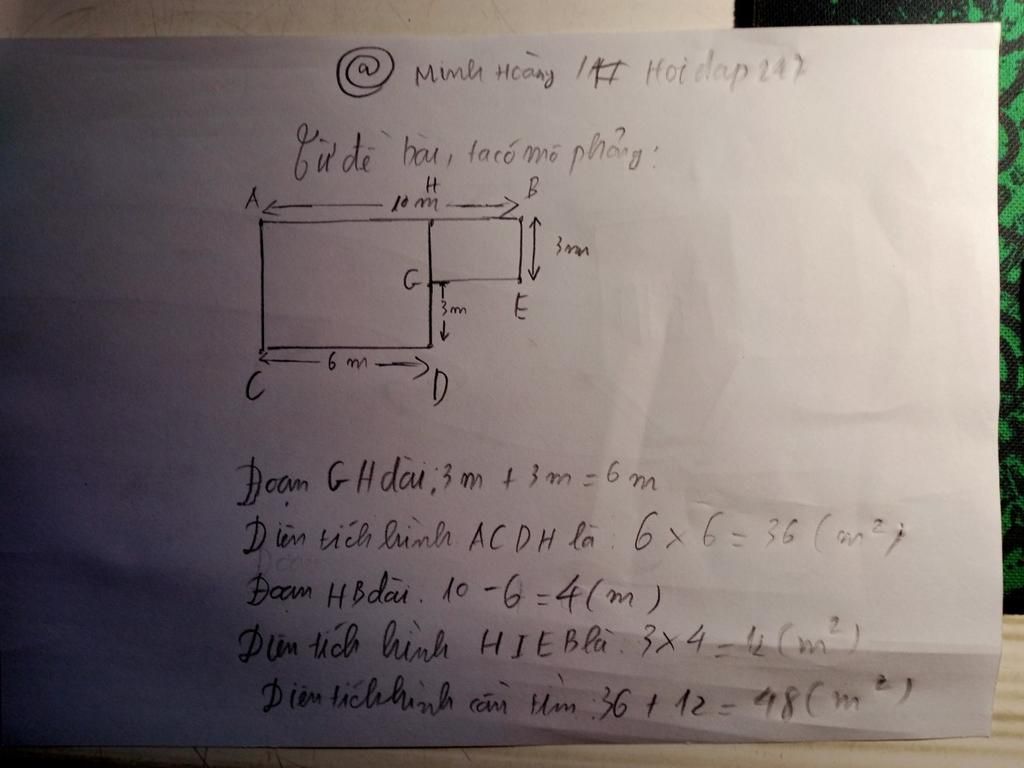 @ Minh Hoàng / Hoidap247
Từ đề bài, ta có mô phỏng:
A H B
10 m
3m
G
3m
E
6 m
C D
Đoạn GH dài: 3m + 3m = 6m
Diện tích hình ACDH là: 6 x 6 = 36 (m²)
Đoạn HB dài: 10 - 6 = 4 (m)
Diện tích hình HIEB là: 3 x 4 = (m²)
Diện tích hình cần tìm: 36 + 12 = 48 (m²)